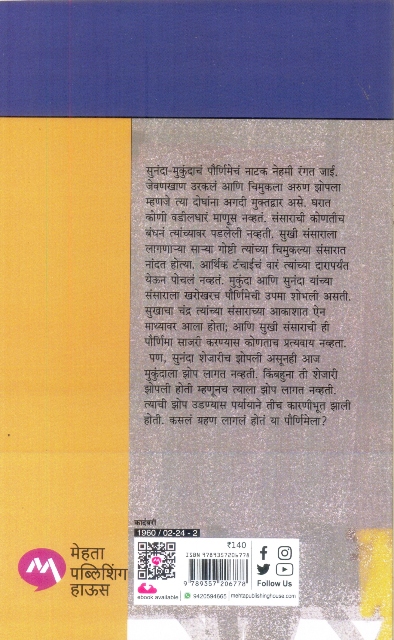 सुनंदा-मुकुंदाचं पौर्णिमेचं नाटक नेहमी रंगत जाई.
जेवणखाण उरकलं आणि चिमुकला अरुण झोपला
म्हणजे त्या दोघांना अगदी मुक्तद्वार असे. घरात
कोणी वडीलधारं माणूस नव्हतं. संसाराची कोणतीच
बंधनं त्यांच्यावर पडलेली नव्हती. सुखी संसाराला
लागणाऱ्या साऱ्या गोष्टी त्यांच्या चिमुकल्या संसारात
नांदत होत्या. आर्थिक टंचाईचं वारं त्यांच्या दारापर्यंत
येऊन पोचलं नव्हतं. मुकुंदा आणि सुनंदा यांच्या
संसाराला खरोखरच पौर्णिमेची उपमा शोभली असती.
सुखाचा चंद्र त्यांच्या संसाराच्या आकाशात ऐन
माथ्यावर आला होता; आणि सुखी संसाराची ही
पौर्णिमा साजरी करण्यास कोणताच प्रत्यवाय नव्हता.
पण, सुनंदा शेजारीच झोपली असूनही आज
मुकुंदाला झोप लागत नव्हती. किंबहुना ती शेजारी
झोपली होती म्हणूनच त्याला झोप लागत नव्हती.
त्याची झोप उडण्यास पर्यायाने तीच कारणीभूत झाली
होती. कसलं ग्रहण लागलं होतं या पौर्णिमेला?
कादंबरी
1960 / 02-24 - 2
₹140
ISBN 9789357206778
9 789357 206778
Follow Us
ebook available
9420594665
mehtapublishinghouse.com
मेहता
पब्लिशिंग
हाऊस